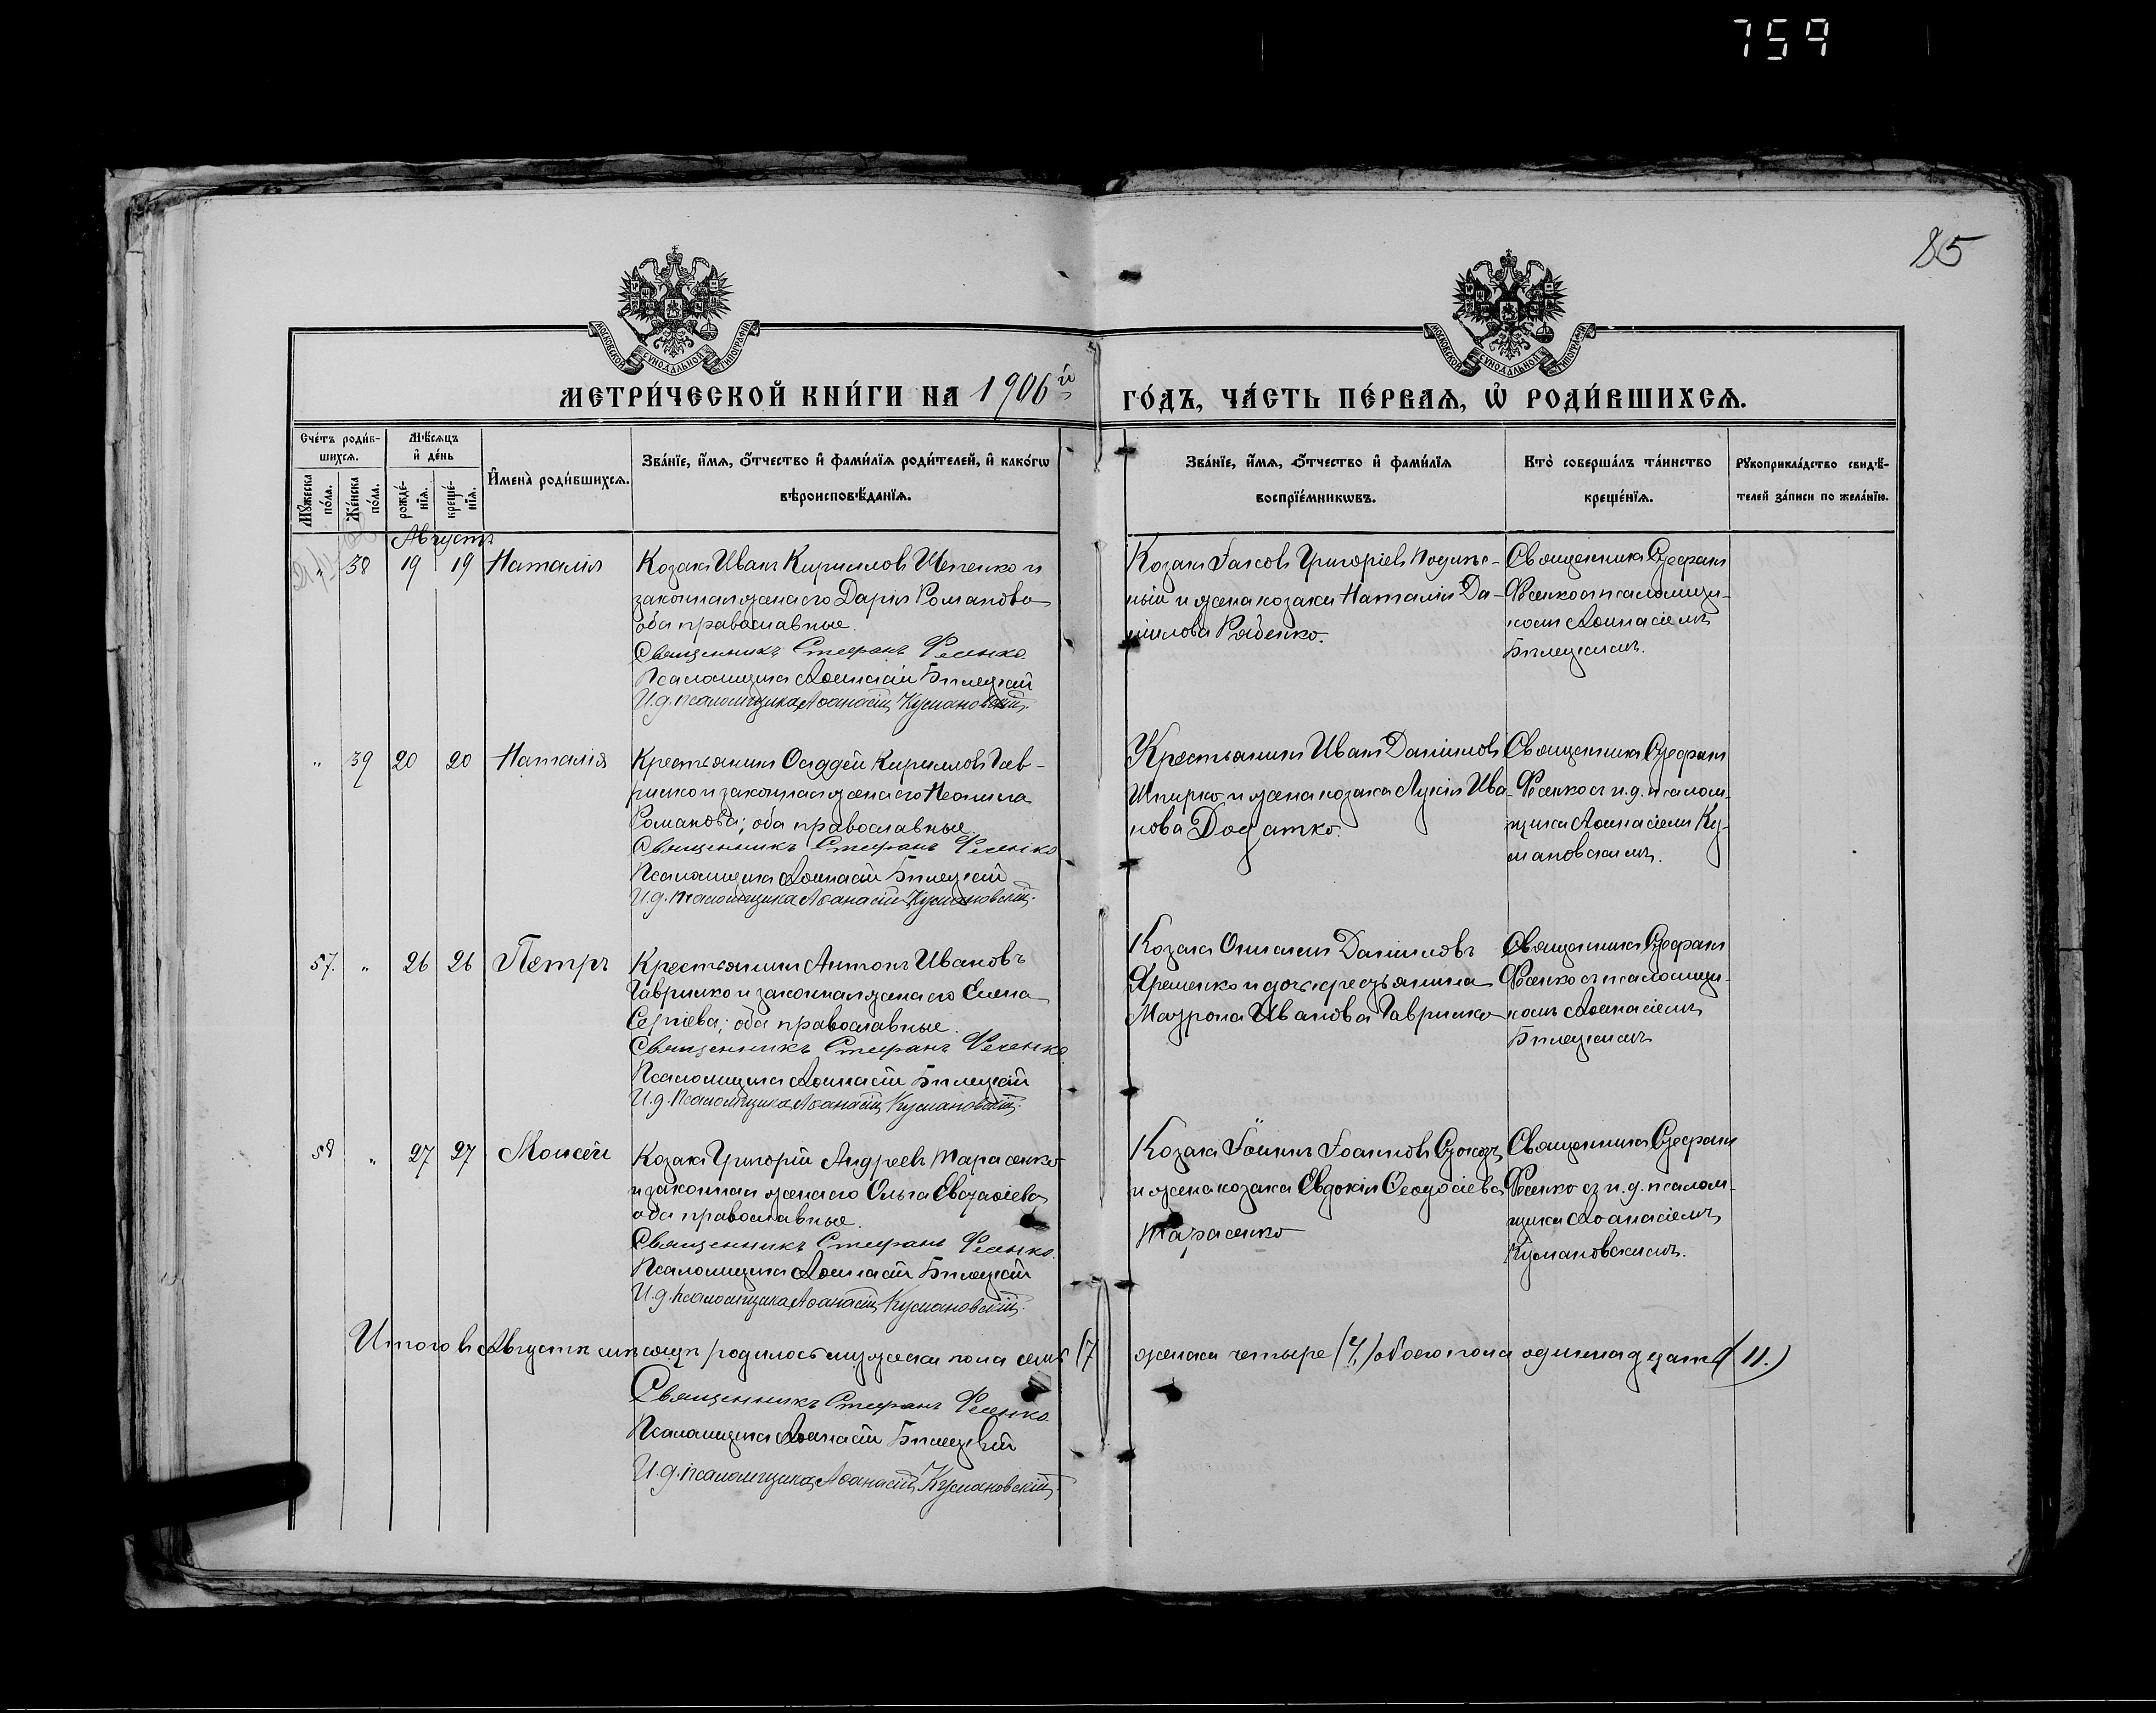 759
85
МОСКОВСКОЙ СУНОДАЛЬНОЙ ТИПОГРАФІИ
МОСКОВСКОЙ СУНОДАЛЬНОЙ ТИПОГРАФІИ
МЕТРИ́ЧЕСКОЙ КНИ́ГИ НА 1906й ГО́ДЪ, ЧА́СТЬ ПЕ́РВАѦ, Ѡ҆ РОДИ́ВШИХСѦ.
Сче́тъ роди́в-
шихсѧ.
Мꙋ́жеска по́ла.
Же́нска по́ла.
Мѣ́сѧцъ
и҆ де́нь
рожде́-
нїѧ.
креще́-
нїѧ.
И҆мена̀ роди́вшихсѧ.
Зва́нїе, и҆́мѧ, ѻ҆́тчество и҆ фами́лїѧ роди́телей, и҆ како́гѡ
вѣроисповѣ́данїѧ.
Зва́нїе, и҆́мѧ, ѻ҆́тчество и҆ фами́лїѧ
воспрїе́мникѡвъ.
Кто̀ соверша́лъ та́инство
креще́нїѧ.
Рꙋкоприкла́дство свидѣ́-
телей за́писи по жела́нїю.
Августъ
" 38 19 19 Наталія
Козакъ Иванъ Кирилловъ Шепенко и
законная жена его Дарія Романова
оба православные.
Священникъ Стефанъ Фесенко.
Псаломщикъ Аѳанасій Билецкій
И.д. псаломщика Аѳанасій Кумановскій.
Козакъ Іаковъ Григоріевъ
и жена козака Наталія Да-
ніилова Рябенко.
Священникъ Стефанъ
Фесенко съ псаломщи-
комъ Аѳанасіемъ
Билецкимъ.
" 39 20 20 Наталія
Крестьянинъ Ѳаддей Кирилловъ Гав-
рилко и законная жена его Неонила
Романова; оба православные.
Священникъ Стефанъ Фесенко
Псаломщикъ Аѳанасій Билецкій
И.д. псаломщика Аѳанасій Кумановскій.
Крестьянинъ Иванъ Даніиловъ
Шпирко и жена козака Лукія Ива-
нова Додатко.
Священникъ Стефанъ
Фесенко съ и.д. псалом-
щика Аѳанасіемъ Ку-
мановскимъ.
57. " 26 26 Петръ
Крестьянинъ Антонъ Ивановъ
Гаврилко и законная жена его Елена
Сергіева; оба православные.
Священникъ Стефанъ Фесенко
Псаломщикъ Аѳанасій Билецкій
И.д. псаломщика Аѳанасій Кумановскій.
Козакъ Даніиловъ
Яременко и дочь крестьянина
Матрона Иванова Гаврилко
Священникъ Стефанъ
Фесенко съ псаломщи-
комъ Аѳанасіемъ
Билецкимъ
58 " 27 27 Моисей
Козакъ Григорій Андреевъ Тарасенко
и законная жена его Ольга Евстаѳіева
оба православные.
Священникъ Стефанъ Фесенко.
Псаломщикъ Аѳанасій Билецкій
И.д. псаломщика Аѳанасій Кумановскій.
Козакъ Іоаннъ Іоанновъ
и жена козака Евдокія Ѳеодосіева
Тарасенко
Священникъ Стефанъ
Фесенко съ и.д. псалом-
щика Аѳанасіемъ
Кумановскимъ.
Итого въ Августѣ мѣсяцѣ родилось мужеска пола семь (7 женска четыре (4) обоего пола одиннадцать (11.)
Священникъ Стефанъ Фесенко.
Псаломщикъ Аѳанасій Билецкій
И.д. псаломщика Аѳанасій Кумановскій.